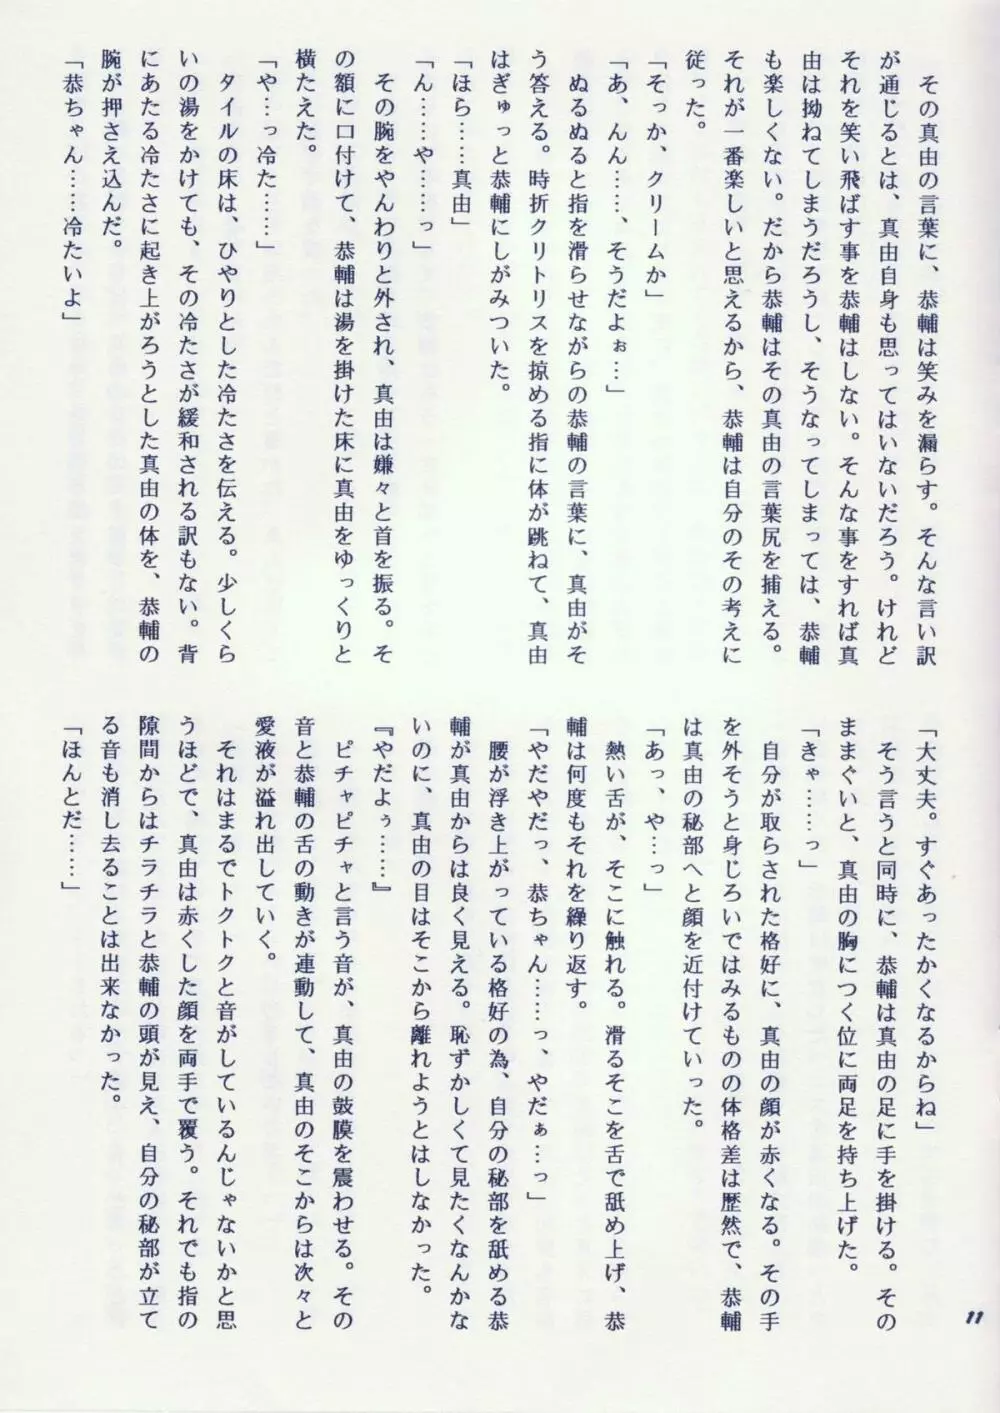 その真由の言葉に、恭輔は笑みを漏らす。そんな言い訳
が通じるとは、真由自身も思ってはいないだろう。けれど
それを笑い飛ばす事を恭輔はしない。そんな事をすれば真
由は拗ねてしまうだろうし、そうなってしまっては、恭輔
も楽しくない。だから恭輔はその真由の言葉尻を捕える。
それが一番楽しいと思えるから、恭輔は自分のその考えに
従った。
「そっか、クリームか」
「あ、んん……、そうだよぉ…」
ぬるぬると指を滑らせながらの恭輔の言葉に、真由がそ
う答える。時折クリトリスを掠める指に体が跳ねて、真由
はぎゅっと恭輔にしがみついた。
「ほら……真由」
「ん……や……っ」
その腕をやんわりと外され、真由は嫌々と首を振る。そ
の額に口付けて、恭輔は湯を掛けた床に真由をゆっくりと
横たえた。
「や…っ冷た……」
タイルの床は、ひやりとした冷たさを伝える。少しくら
いの湯をかけても、その冷たさが緩和される訳もない。背
にあたる冷たさに起き上がろうとした真由の体を、恭輔の
腕が押さえ込んだ。
「恭ちゃん……冷たいよ」
「大丈夫。すぐあったかくなるからね」
そう言うと同時に、恭輔は真由の足に手を掛ける。その
ままぐいと、真由の胸につく位に両足を持ち上げた。
「きゃ……っ」
自分が取らされた格好に、真由の顔が赤くなる。その手
を外そうと身じろいではみるものの体格差は歴然で、恭輔
は真由の秘部へと顔を近付けていった。
「あっ、や…っ」
熱い舌が、そこに触れる。滑るそこを舌で舐め上げ、恭
輔は何度もそれを繰り返す。
「やだやだっ、恭ちゃん……っ、やだぁ…っ」
腰が浮き上がっている格好の為、自分の秘部を舐める恭
輔が真由からは良く見える。恥ずかしくて見たくなんかな
いのに、真由の目はそこから離れようとはしなかった。
『やだよぅ……』
ピチャピチャと言う音が、真由の鼓膜を震わせる。その
音と恭輔の舌の動きが連動して、真由のそこからは次々と
愛液が溢れ出していく。
それはまるでトクトクと音がしているんじゃないかと思
うほどで、真由は赤くした顔を両手で覆う。それでも指の
隙間からはチラチラと恭輔の頭が見え、自分の秘部が立て
る音も消し去ることは出来なかった。
「ほんとだ……」
11